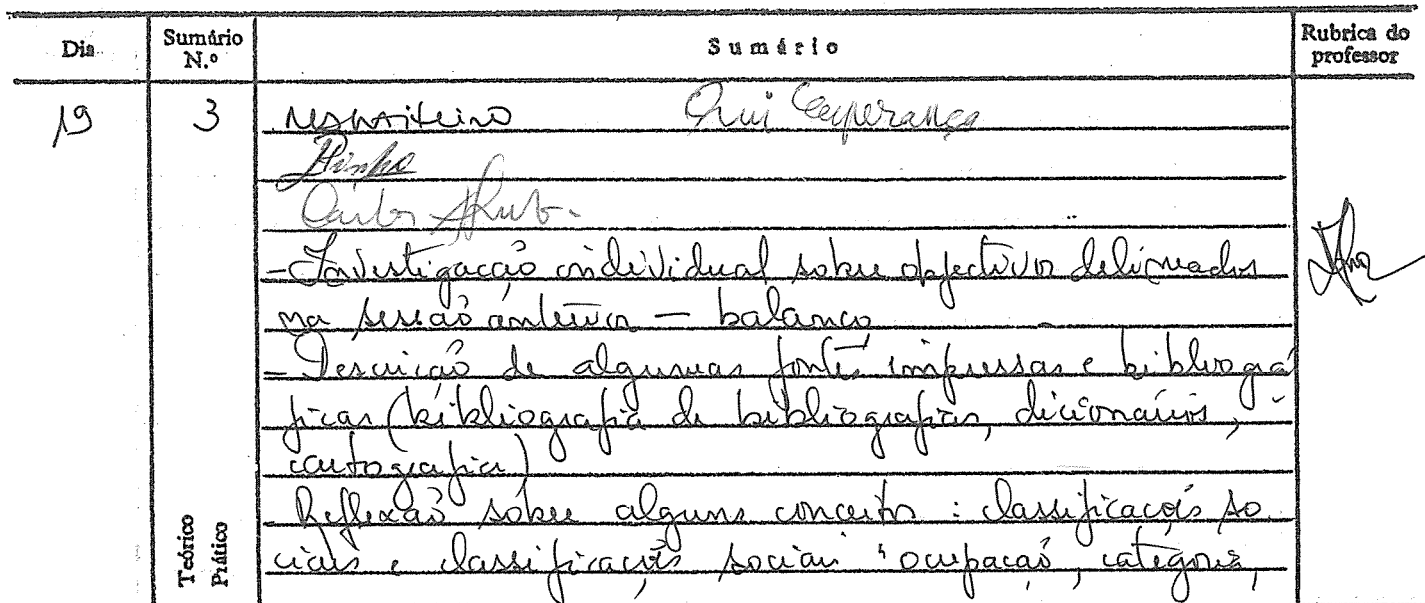 Dia Sumário N.º Sumário Rubrica do professor
19 3 Rui Esperança
Pinho
Carlos
- Investigação individual sobre objectivos delineados
na sessão anterior — balanço
- Descrição de algumas fontes impressas e bibliográ
ficas (bibliografia de bibliografias, dicionários,
cartografia)
- Reflexão sobre alguns conceitos : classificações so
ciais e classificações sociais ocupação, categoria,
Teórico
Prático